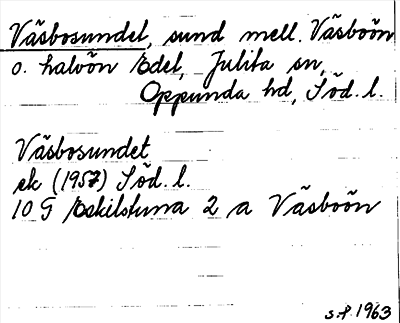 Väsbosundet, sund mell. Väsboön
o. halvön Edel, Julita sn,
Oppunda hd, Söd. l.
Väsbosundet
ek (1957) Söd. l.
10 G Eskilstuna 2 a Väsboön
s.f. 1963